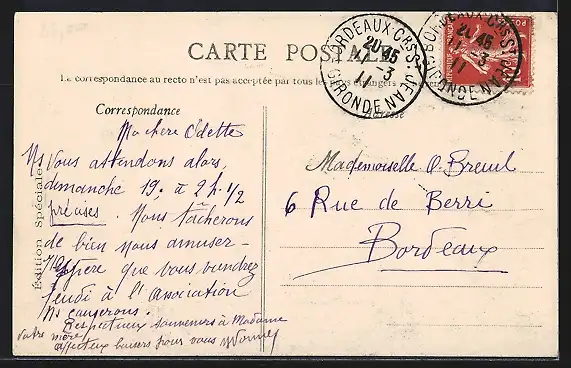 CARTE POSTALE
La correspondance au recto n'est pas acceptée par tous les pays étrangers
BORDEAUX CRS ST JEAN
20 45
1 - 3
11
GIRONDE
BORDEAUX CRS ST JEAN
20 45
1 - 3
11
GIRONDE
Correspondance
Adresse
Edition Spéciale
Ma chère Odette
Ns Vous attendons alors,
dimanche 19, à 2h. 1/2
précises. Nous tâcherons
de bien nous amuser -
J'espère que vous viendrez
Jeudi à l'Association
Ns causerons.
Respectueux souvenirs à Madame
votre mère,
affectueux baisers pour vous Yvonne
Mademoiselle O. Breuil
6 Rue de Berri
Bordeaux